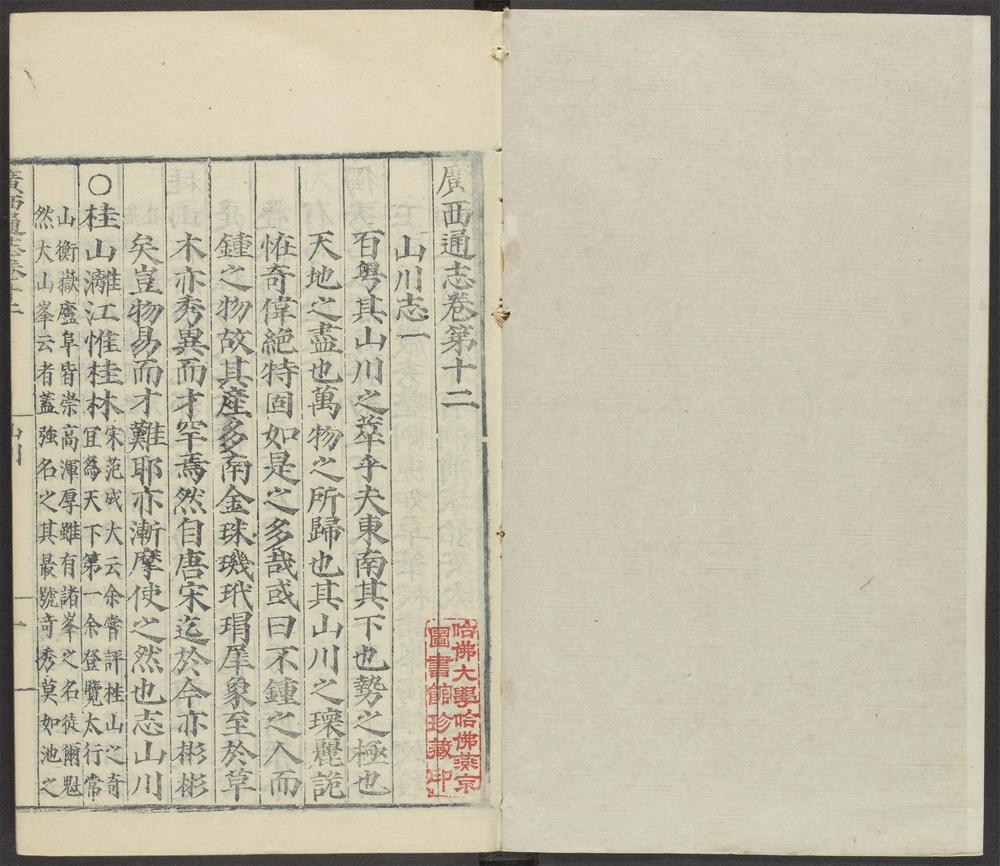 廣西通志卷第十二
山川志一
百粤其山川之萃乎夫東南其下也勢之極也
天地之盡也萬物之所歸也其山川之瓌麗詭
恠奇偉絶特固如是之多哉或曰不鍾之人而
鍾之物故其産多南金珠璣玳瑁犀象至於草
木亦秀異而才罕焉然自唐宋迄於今亦彬彬
矣豈物易而才難耶亦漸摩使之然也志山川
○桂山灕江惟桂林宋范成大云余嘗評桂山之奇
宜爲天下第一余登覽太行常
山衡嶽廬阜皆崇高渾厚雖有諸峯之名徒爾魁
然大山峯云者蓋強名之其最號奇秀莫如池之
廣西通志卷十二
山川
一
哈佛大學哈佛燕京
圖書館珍藏印